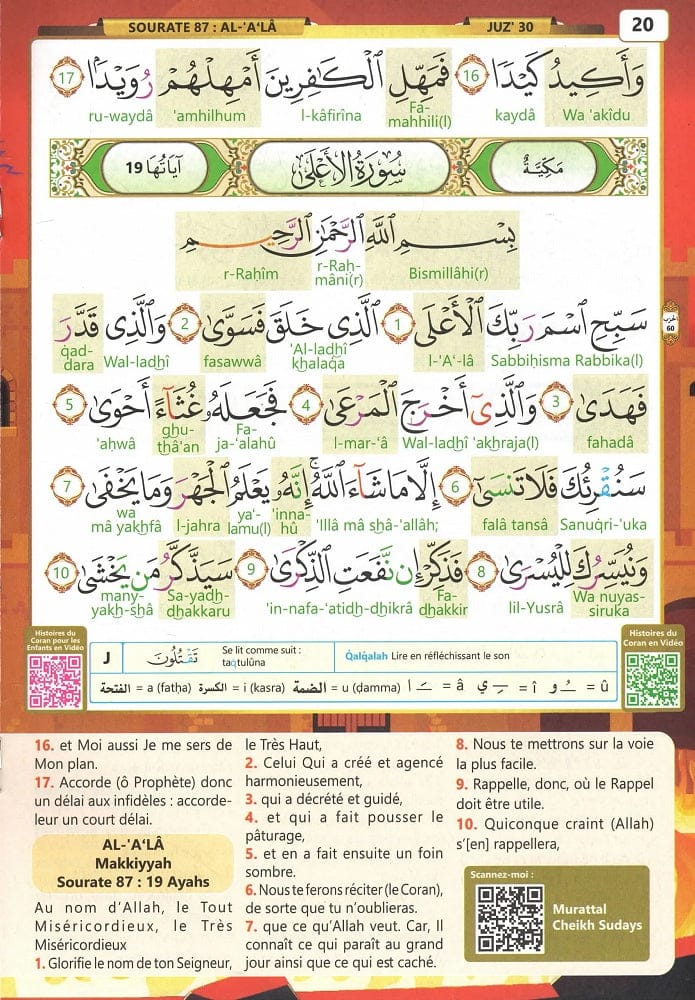 SOURATE 87 : AL-'A‘LÂ
JUZ' 30
20
وَأَكِيدُ كَيْدًا 16 فَمَهِّلِ ٱلْكَٰفِرِينَ أَمْهِلْهُمْ رُوَيْدًۢا 17
Wa 'akîdu kaydâ Fa-mahhili(l) l-kâfirîna 'amhilhum ru-waydâ
مَكِيَّةٌ
سُورَةُ الأَعْلَىٰ
آيَاتُهَا 19
بِسْمِ ٱللَّهِ ٱلرَّحْمَٰنِ ٱلرَّحِيمِ
Bismillâhi(r) r-Raḥ-mâni(r) r-Raḥîm
سَبِّحِ ٱسْمَ رَبِّكَ ٱلْأَعْلَى 1 ٱلَّذِي خَلَقَ فَسَوَّىٰ 2 وَٱلَّذِي قَدَّرَ
Sabbiḥisma Rabbika(l) l-'A‘-lâ 'Al-ladhî khalaqa fasawwâ Wal-ladhî qad-dara
الحزب
60
فَهَدَىٰ 3 وَٱلَّذِيٓ أَخْرَجَ ٱلْمَرْعَىٰ 4 فَجَعَلَهُۥ غُثَآءً أَحْوَىٰ 5
fahadâ Wal-ladhî 'akhraja(l) l-mar-‘â Fa-ja-‘alahû ghu-thâ'an 'aḥwâ
سَنُقْرِئُكَ فَلَا تَنسَىٰٓ 6 إِلَّا مَا شَآءَ ٱللَّهُ ۚ إِنَّهُۥ يَعْلَمُ ٱلْجَهْرَ وَمَا يَخْفَىٰ 7
Sanuqri-'uka falâ tansâ 'Illâ mâ shâ-'allâh; 'inna-hû ya‘-lamu(l) l-jahra wa mâ yakhfâ
وَنُيَسِّرُكَ لِلْيُسْرَىٰ 8 فَذَكِّرْ إِن نَّفَعَتِ ٱلذِّكْرَىٰ 9 سَيَذَّكَّرُ مَن يَخْشَىٰ 10
Wa nuyas-siruka lil-Yusrâ Fa-dhakkir 'in-nafa-‘atidh-dhikrâ Sa-yadh-dhakkaru many-yakh-shâ
Histoires du Coran pour les Enfants en Vidéo
J
تَقْتُلُونَ
Se lit comme suit : taqtulûna
Qalqalah Lire en réfléchissant le son
الفتحة = a (fatḥa) الكسرة = i (kasra) الضمة = u (ḍamma) ـَـ ا = â ـِـ ي = î ـُـ و = û
Histoires du Coran en Vidéo
16. et Moi aussi Je me sers de
Mon plan.
17. Accorde (ô Prophète) donc
un délai aux infidèles : accorde-
leur un court délai.
AL-'A‘LÂ
Makkiyyah
Sourate 87 : 19 Ayahs
Au nom d’Allah, le Tout
Miséricordieux, le Très
Miséricordieux
1. Glorifie le nom de ton Seigneur,
le Très Haut,
2. Celui Qui a créé et agencé
harmonieusement,
3. qui a décrété et guidé,
4. et qui a fait pousser le
pâturage,
5. et en a fait ensuite un foin
sombre.
6. Nous te ferons réciter (le Coran),
de sorte que tu n’oublieras.
7. que ce qu’Allah veut. Car, Il
connaît ce qui paraît au grand
jour ainsi que ce qui est caché.
8. Nous te mettrons sur la voie
la plus facile.
9. Rappelle, donc, où le Rappel
doit être utile.
10. Quiconque craint (Allah)
s’[en] rappellera,
Scannez-moi :
Murattal
Cheikh Sudays